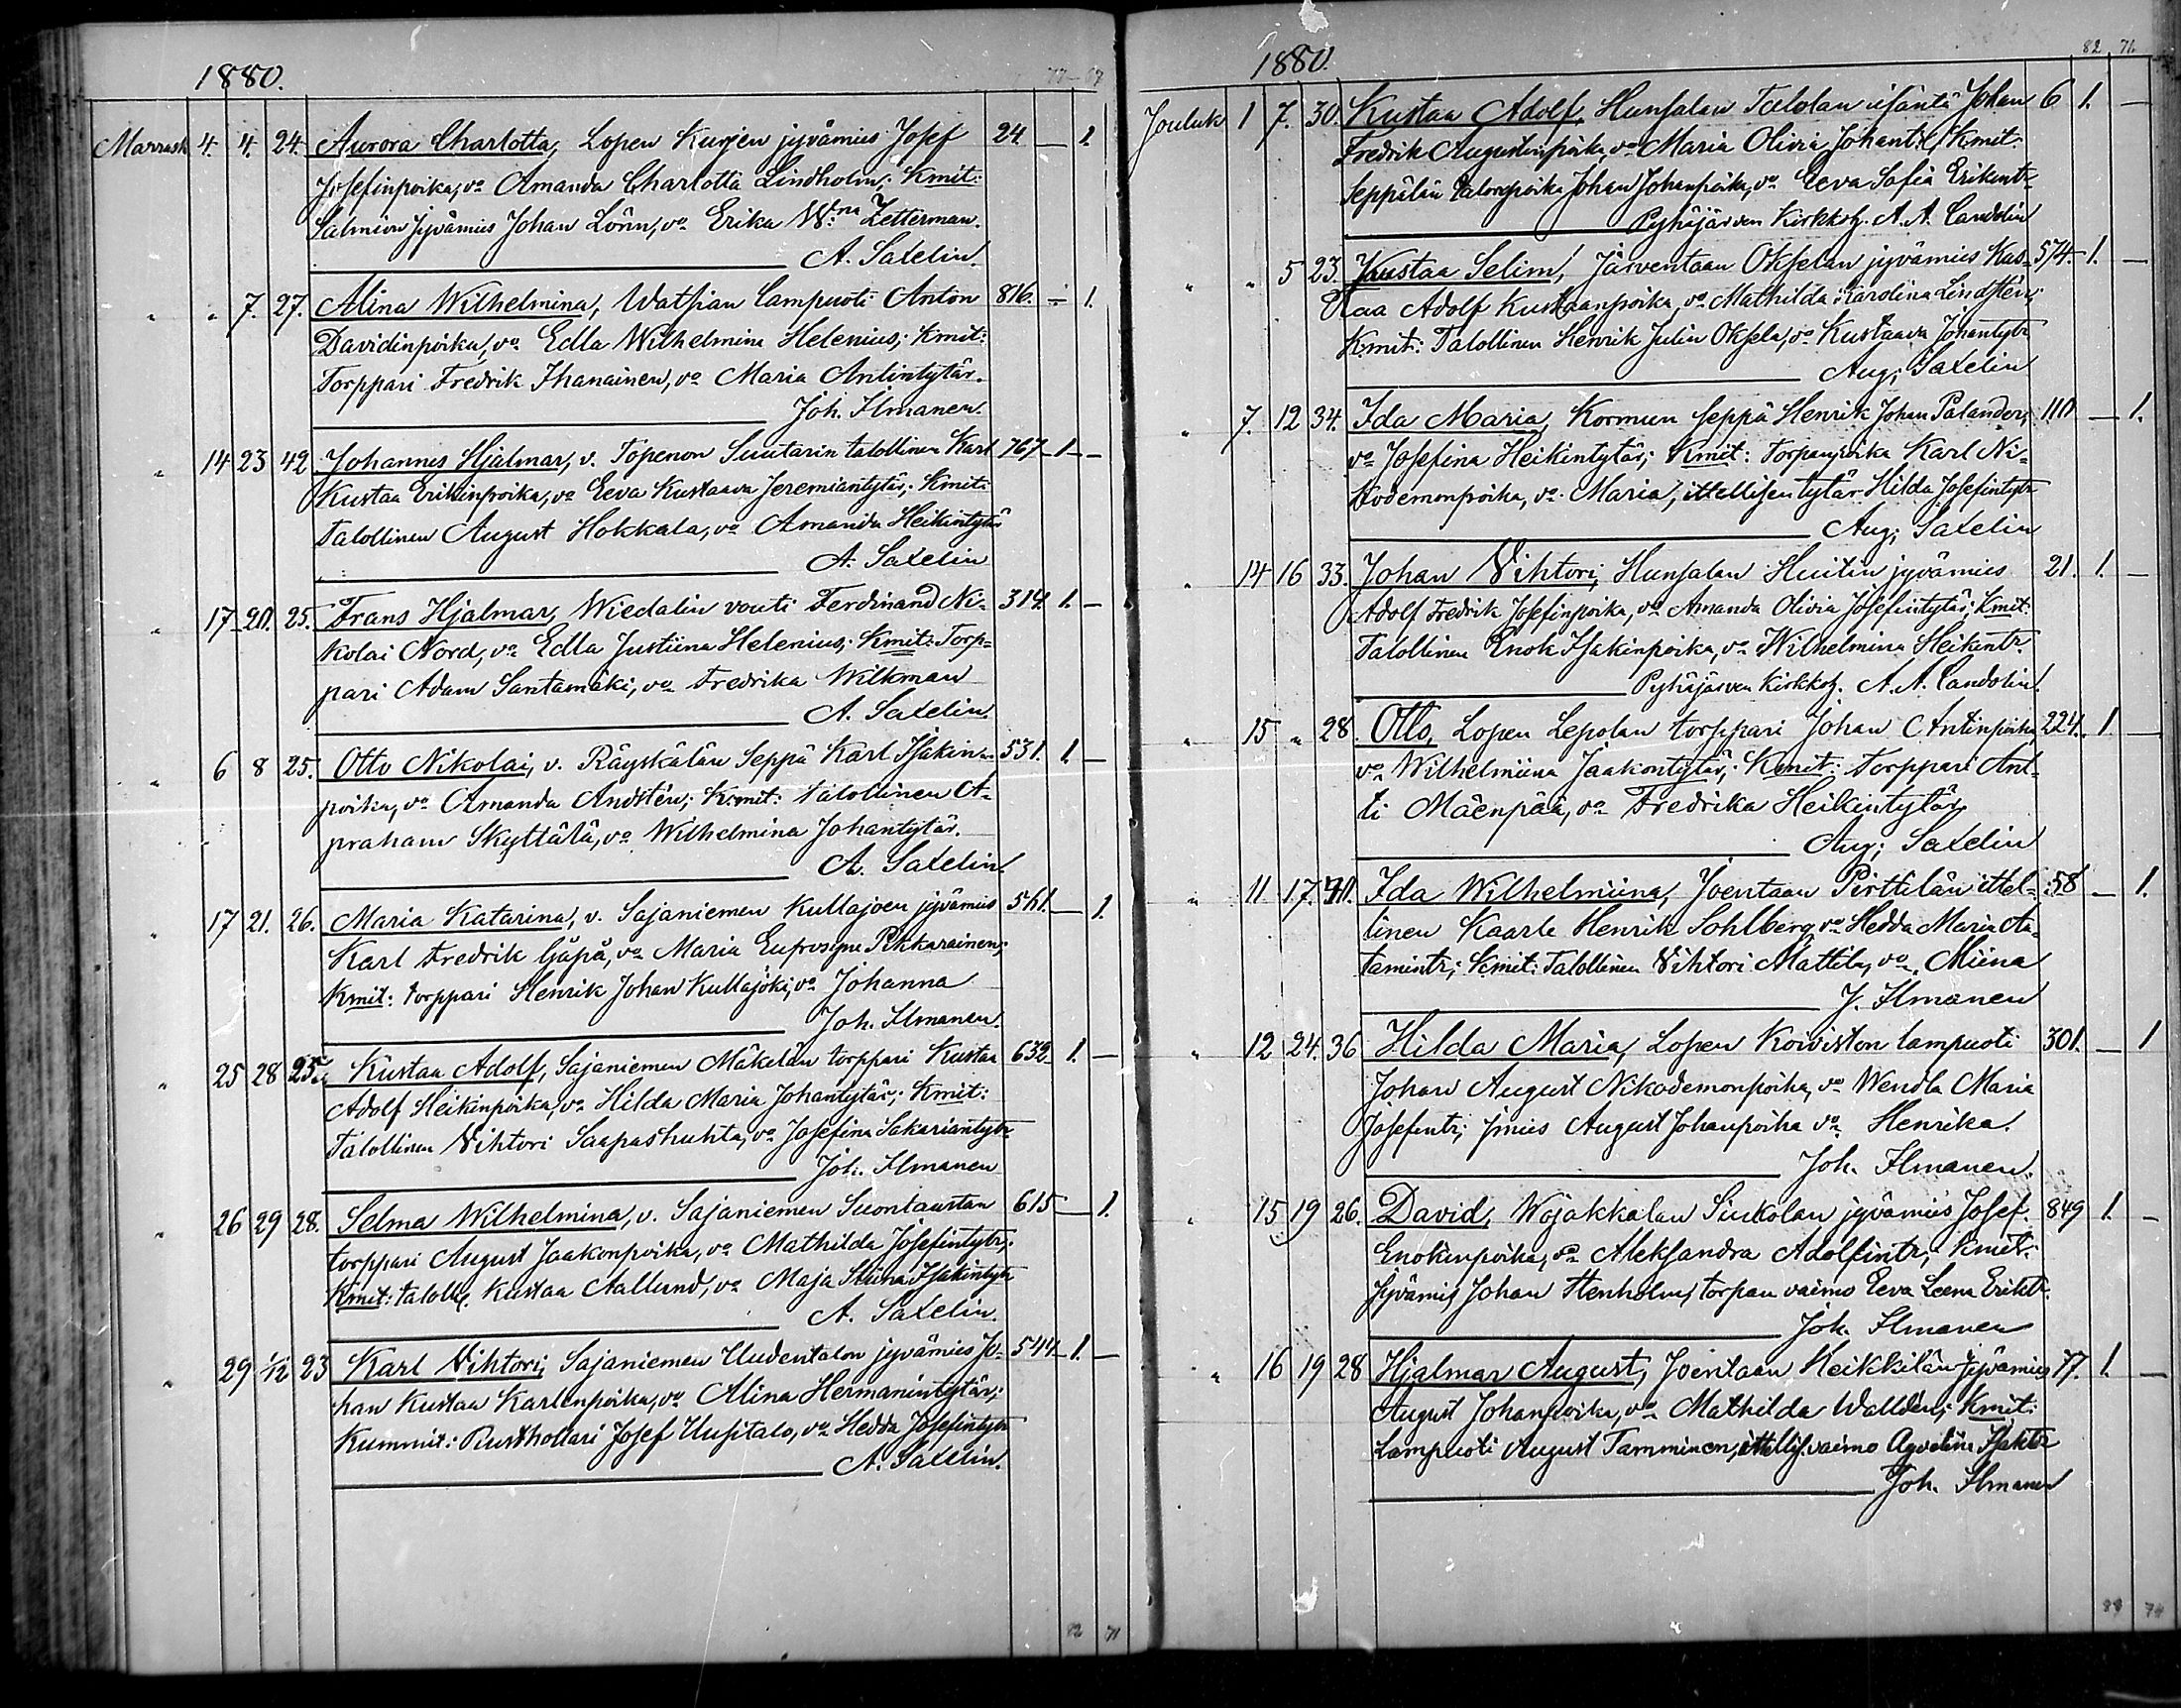 1880.
77 - 67
Marrask 4. 4. 24. Aurora Charlotta, Lopen Kurjen jyvämies Josef 24. — 1.
Josefinpoika, vo Amanda Charlotta Lindholm; Kmit:
Salmien Jyvämies Johan Lönn, vo Erika W:na Zetterman.
A. Saxelin.
" " 7. 27. Alina Wilhelmina, Watsian Lampuoti Anton 816. — 1.
Davidinpoika, vo Edla Wilhelmina Helenius; Kmit:
Torppari Fredrik Ihanainen, vo Maria Antintytär.
Joh. Ilmanen.
" 14 23 42 Johannes Hjalmar, v. Topenon Suutarin talollinen Karl 767 1. —
Kustaa Erikinpoika, vo Eeva Kustaava Jeremiantytär; Kmit:
Talollinen August Hokkala, vo Amanda Heikintytär
A. Saxelin
" 17 20. 25. Frans Hjalmar, Wiedalin vouti Ferdinand Ni- 314. 1. —
kolai Nord, vo Edla Justiina Helenius; Kmit: Torp-
pari Adam Santamäki, vo Fredrika Wilkman
A. Saxelin.
" 6 8 25. Otto Nikolai, v. Räyskälän Seppä Karl Isakin- 531. 1. —
poika, vo Amanda Andstén; Kmit: talollinen A-
praham Skyttälä, vo Wilhelmina Johantytär.
A. Saxelin.
" 17 21. 26. Maria Katarina, v. Sajaniemen Kullajoen jyvämies 561. — 1.
Karl Fredrik Gåpå, vo Maria Euprosyne Pikkarainen;
Kmit: torppari Henrik Johan Kullajoki, vo Johanna
Joh. Ilmanen.
" 25 28 25 Kustaa Adolf, Sajaniemen Mäkelän torppari Kustaa 632 1. —
Adolf Heikinpoika, vo Hilda Maria Johantytär; Kmit:
Talollinen Vihtori Saapashuhta, vo Josefina Sakariantytr
Joh. Ilmanen
" 26 29 28. Selma Wilhelmina, v. Sajaniemen Suontaustan 615 — 1.
torppari August Jaakonpoika, vo Mathilda Josefintytr;
Kmit: talolls. Kustaa Aallund, vo Maja Stiina Isakintytr
A. Saxelin.
" 29 1/12 23 Karl Vihtori, Sajaniemen Uudentalon jyvämies Jo- 544 1. —
han Kustaa Karlenpoika, vo Alina Hermanintytär;
Kummit: Rusthollari Josef Uusitalo, vo Hedda Josefintytr
A. Saxelin.
82 71
1880.
82 71
Jouluk 1 7. 30. Kustaa Adolf, Hunsalan Talolan isäntä Johan 6 1. —
Fredrik Augustinpoika, vo Maria Olivia Johantr; Kmit:
Seppälän talonpoika Johan Johanpoika, vo Eeva Sofia Erikentr
Pyhäjärven Kirkkoh. A. A. Candolin
" " 5 23. Kustaa Selim, Järventaan Okselan jyvämies Kus- 574. 1. —
taa Adolf Kustaanpoika, vo Mathilda Karolina Lindstén;
Kmit: Talollinen Henrik Julin Oksela, vo Kustaava Johantytr
Aug; Saxelin
" 7. 12 34. Ida Maria, Kormun seppä Henrik Johan Palander, 110 — 1.
vo Josefina Heikintytär; Kmit: Torpanpoika Karl Ni-
kodemonpoika, vo Maria, ittellisen tytär Hilda Josefintytr
Aug; Saxelin
" 14 16 33. Johan Vihtori, Hunsalan Huitin jyvämies 21. 1. —
Adolf Fredrik Josefinpoika, vo Amanda Olivia Josefintytär; Kmit:
Talollinen Enok Isakinpoika, vo Wilhelmina Heikentr.
Pyhäjärven Kirkkoh. A. A. Candolin.
" 15 " 28. Otto, Lopen Lepolan torppari Johan Antinpoika 224. 1. —
vo Wilhelmiina Jaakontytär; Kmit: Torppari Ant-
ti Mäenpää, vo Fredrika Heikintytär
Aug; Saxelin
" 11 17. 40. Ida Wilhelmiina, Joentaan Pirttilän ittel- 58 — 1.
linen Kaarle Henrik Sohlberg, vo Hedda Maria Aa-
tamintr; Kmit: Talollinen Vihtori Mattila, vo Miina
J. Ilmanen
" 12 24. 36 Hilda Maria, Lopen Koiviston lampuoti 301. — 1
Johan August Nikodemonpoika, vo Wendla Maria
Josefintr; jmies August Johanpoika vo Henrika.
Joh. Ilmanen.
" 15 19 26. David, Wojakkalan Sinkolan jyvämies Josef 849 1. —
Enokinpoika, vo Aleksandra Adolfintr; Kmit:
Jyvämis Johan Stenholm, torpan vaimo Eeva Leena Eriktr.
Joh. Ilmanen
" 16 19 28 Hjalmar August, Joentaan Heikkilän Jyvämies 77. 1. —
August Johanpoika, vo Mathilda Walldén; Kmit:
Lampuoti August Tamminen, ittellis. vaimo Agveliina Isaktr
Joh. Ilmanen